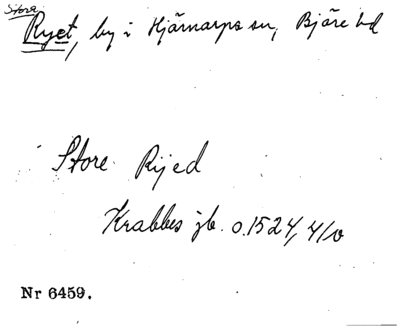 Stora
Ryet, by i Hjärnarps sn, Bjäre hd
Store Rijed
Krabbes jb. o. 1524, 4/v
Nr 6459.